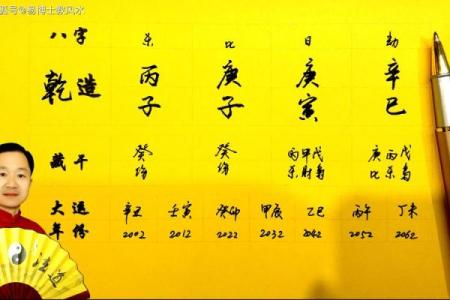 狐号@易博士教风水
八字 杀 比 日 劫
乾造 丙子 庚子 庚寅 辛巳
藏干 癸 癸 丙甲戊 庚丙戊
伤 伤 杀财枭 比杀枭
大运 辛丑 壬寅 癸卯 甲辰 乙巳 丙午 丁未
年份 2002 2012 2022 2032 2042 2052 2062